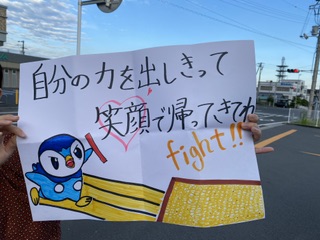 自分の力を出しきって
笑顔で帰ってきてね
fight!!